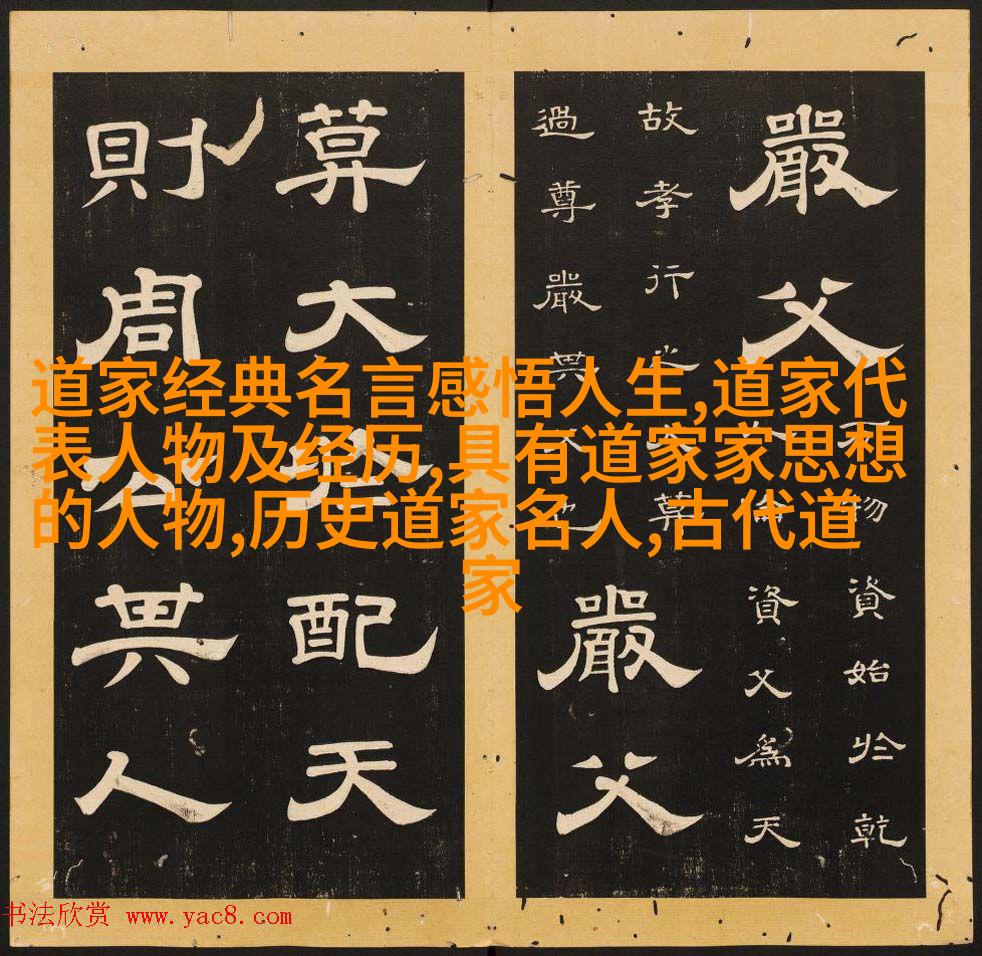 道家经典名言感悟人生,道家代
表人物及经历,具有道家家思想
的人物,历史道家名人,古代道
家
嚴父
物資始於乾
倫資父為天
故孝行之莫
過尊嚴其也
嚴父
莫大配天
則周公其人
书法欣赏 www.yac8.com